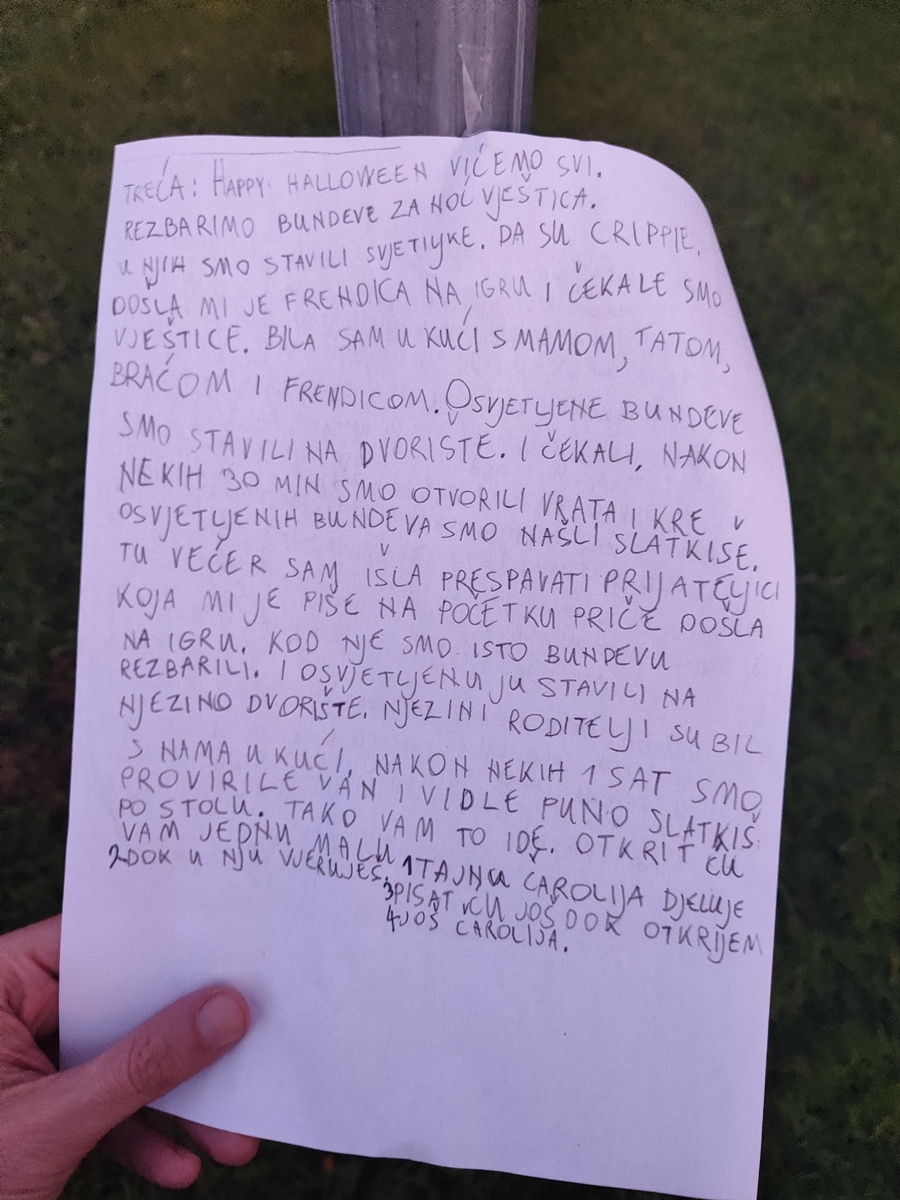 TREĆA: HAPPY HALLOWEEN VIĆEMO SVI.
REZBARIMO BUNDEVE ZA NOĆ VJEŠTICA.
U NJIH SMO STAVILI SVJETILJKE. DA SU CRIPPIE.
DOŠLA MI JE FRENDICA NA IGRU I ČEKALE SMO
VJEŠTICE. BILA SAM U KUĆI S MAMOM, TATOM,
BRAĆOM I FRENDICOM. OSVJETLJENE BUNDEVE
SMO STAVILI NA DVORIŠTE. I ČEKALI, NAKON
NEKIH 30 MIN SMO OTVORILI VRATA I KRE
OSVJETLJENIH BUNDEVA SMO NAŠLI SLATKIŠE.
TU VEĆER SAM IŠLA PRESPAVATI PRIJATELJICI
KOJA MI JE PIŠE NA POČETKU PRIČE DOŠLA
NA IGRU. KOD NJE SMO ISTO BUNDEVU
REZBARILI. I OSVJETLJENU JU STAVILI NA
NJEZINO DVORIŠTE. NJEZINI RODITELJI SU BIL
S NAMA U KUĆI, NAKON NEKIH 1 SAT SMO
PROVIRILE VAN I VIDLE PUNO SLATKIŠ
PO STOLU. TAKO VAM TO IDE. OTKRIT ĆU
VAM JEDNU MALU 1TAJNU ČAROLIJA DJELUJE
2DOK U NJU VJERUJEŠ.
3PISAT ĆU JOŠ DOK OTKRIJEM
4JOŠ ČAROLIJA.